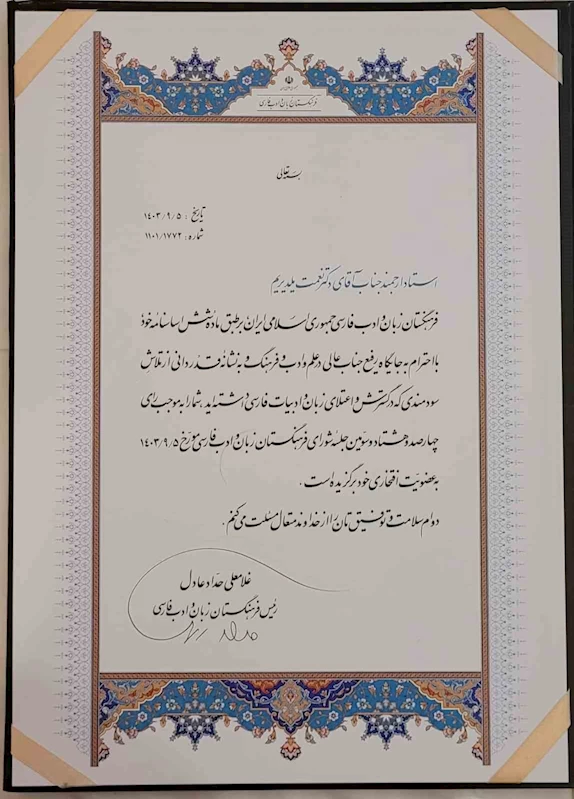 فرهنگستان زبان و ادب فارسی
بسمه تعالی
تاریخ : ۱۴۰۳/۹/۵
شماره : ۱۱۰۱/۱۷۷۲
استاد ارجمند جناب آقای دکتر نعمت ییلدیریم
فرهنگستان زبان و ادب فارسی جمهوری اسلامی ایران بر طبق مادهٔ شش اساسنامه خود
با احترام به جایگاه رفیع جناب عالی در علم و ادب و فرهنگ و به نشانهٔ قدردانی از تلاش
سودمندی که در گسترش و اعتلای زبان و ادبیات فارسی داشته‌اید، شما را به موجب رای
چهارصد و هشتاد و سومین جلسهٔ شورای فرهنگستان زبان و ادب فارسی مورخ ۱۴۰۳/۹/۵
به عضویت افتخاری خود برگزیده است .
دوام سلامت و توفیق‌تان را از خداوند متعال مسئلت می‌کنم .
غلامعلی حداد عادل
رئیس فرهنگستان زبان و ادب فارسی